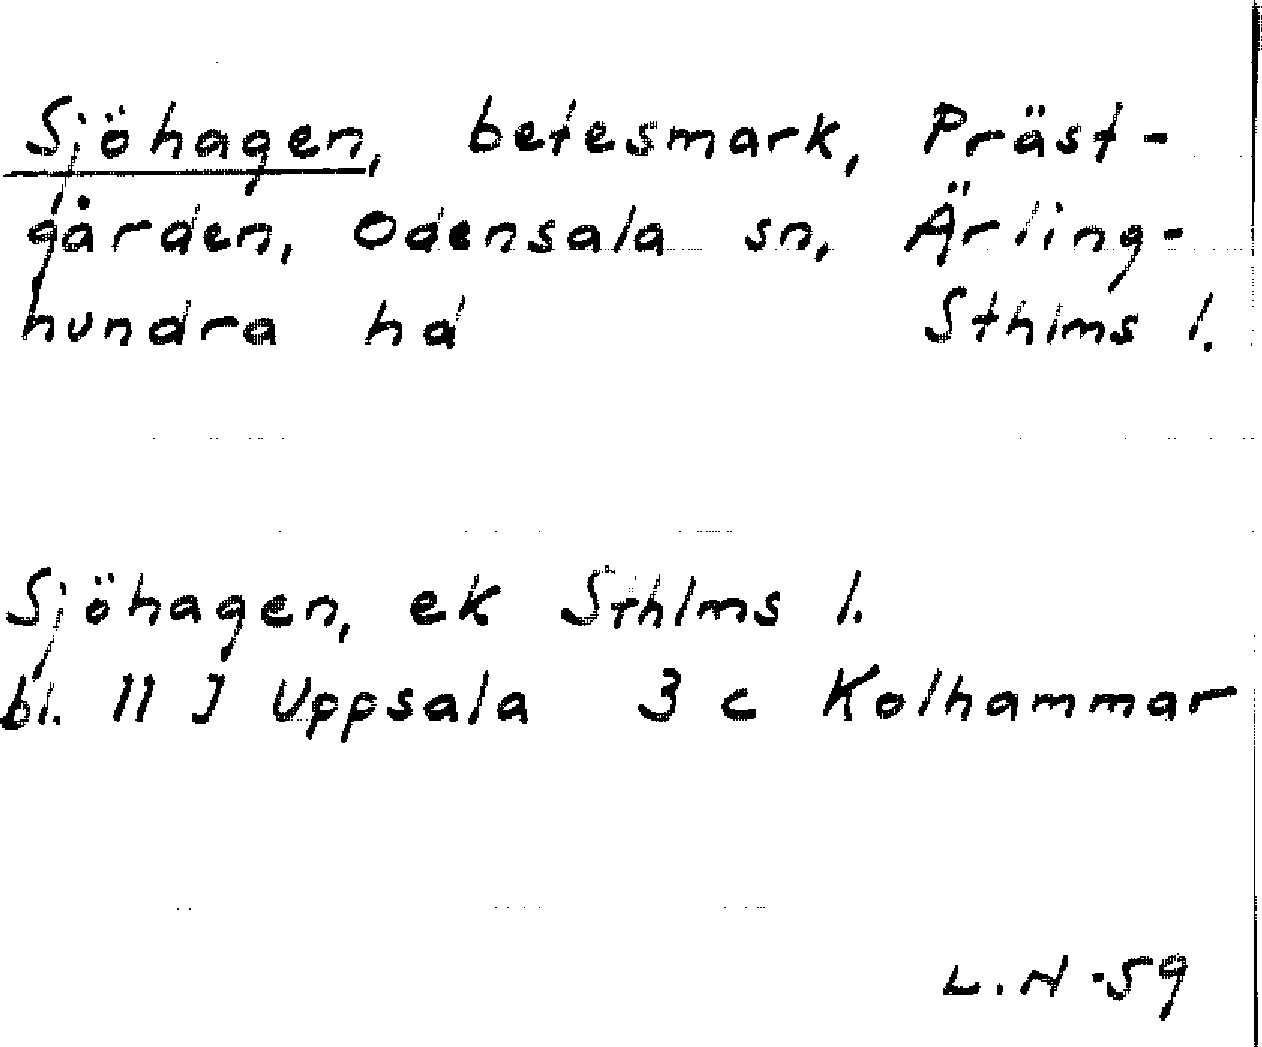 Sjöhagen, betesmark, Präst-
gården, Odensala sn, Ärling-
hundra hd Sthlms l.
Sjöhagen, ek Sthlms l.
bl. 11 J Uppsala 3 c Kolhammar
L.N -59